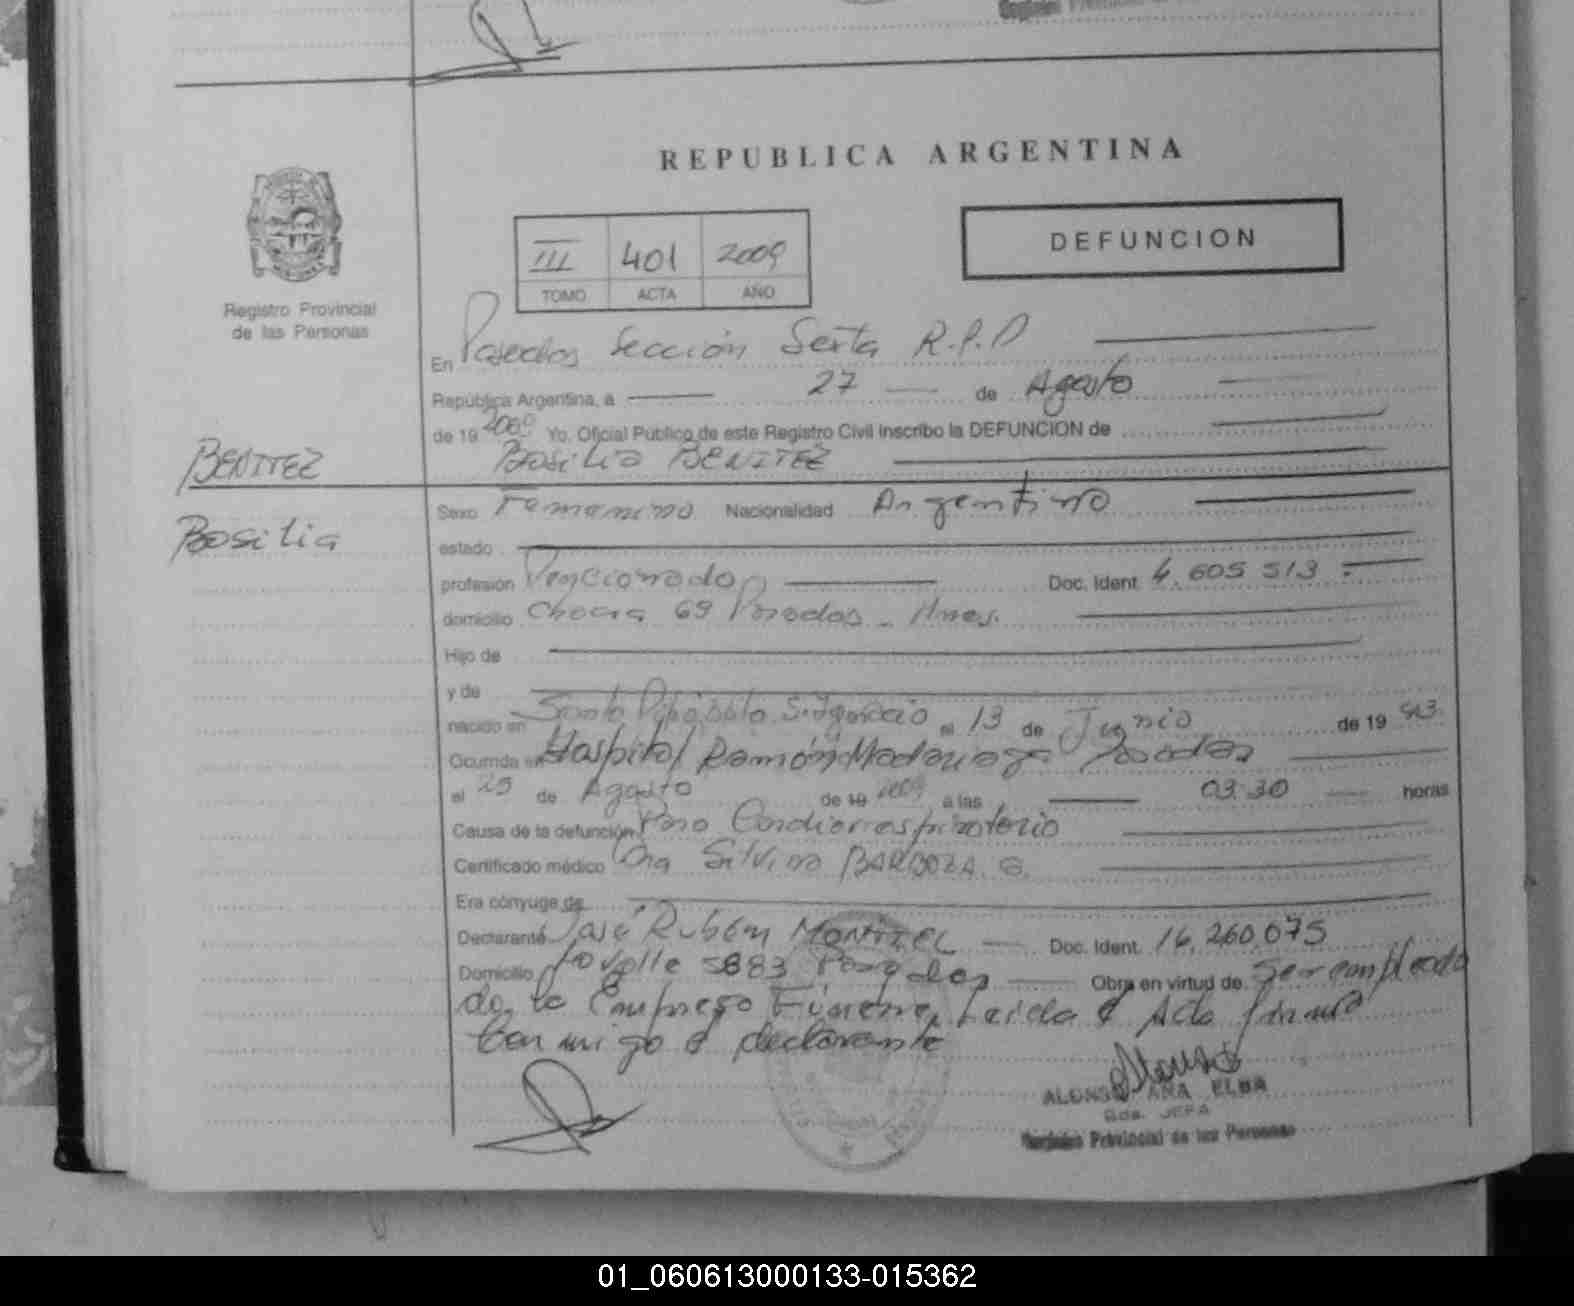 REPUBLICA ARGENTINA
DEFUNCION
III 401 2009
TOMO ACTA AÑO
Registro Provincial
de las Personas
En Posadas Sección Sexta R.P.P
República Argentina, a 27 de Agosto
de 19 2009 Yo, Oficial Público de este Registro Civil inscribo la DEFUNCION de
BENITEZ
Basilia BENITEZ
Basilia
Sexo Femenino Nacionalidad Argentina
estado
profesión Pencionada Doc. Ident. 4.605 513
domicilio Chacra 69 Posadas - Mnes.
Hijo de
y de
nacido en Santo Pipó Dpto. S. Ignacio el 13 de Junio de 19 43
Ocurrida en Hospital Ramón Madariaga Posadas
el 25 de Agosto de 19 2009 a las 03:30 horas
Causa de la defunción Paro Cardiorrespiratorio
Certificado médico Dra Silvina BARBOZA G.
Era cónyuge de
Declarante José Rubén MONTIEL Doc. Ident. 16.260.075
Domicilio Lavalle 5883 Posadas Obra en virtud de Ser empleado
de la Empresa Fúnebre, Leida el Acta firma
conmigo el declarante
ALONSO ANA ELBA
Gda. JEFA
Registro Provincial de las Personas
01_060613000133-015362